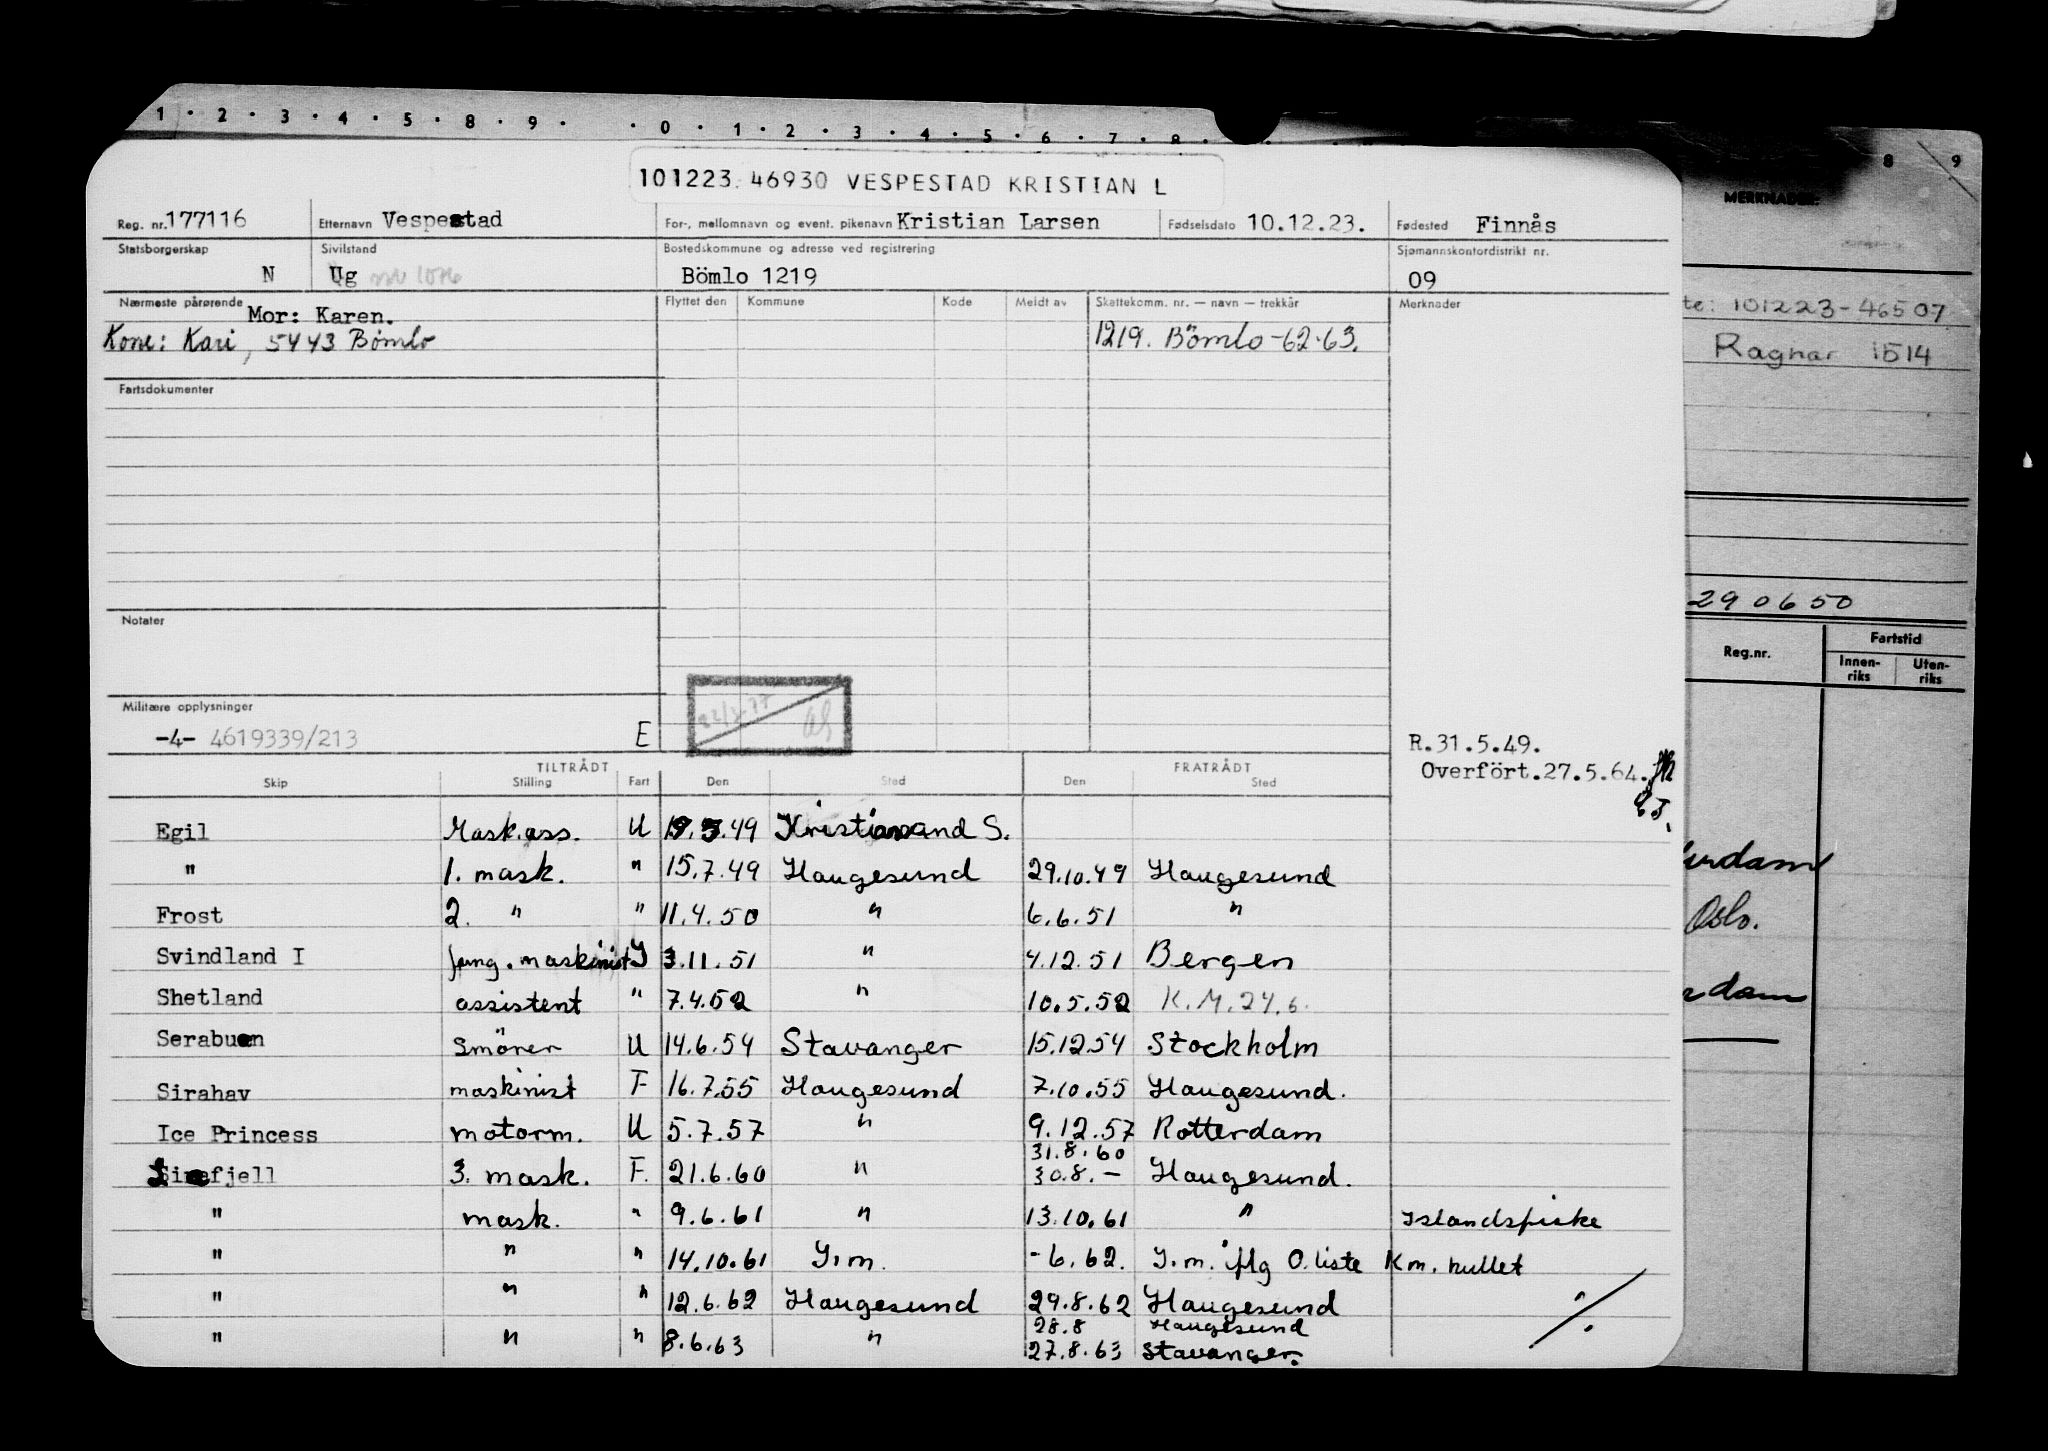 1 · 2 · 3 · 4 · 5 · 8 · 9 · · 0 · 1 · 2 · 3 · 4 · 5 · 6 · 7 · 8 ·
8 9
MERKNADER:
101223 46930 VESPESTAD KRISTIAN L
Reg. nr. 177116 Etternavn Vespestad For-, mellomnavn og event. pikenavn Kristian Larsen Fødselsdato 10.12.23. Fødested Finnås
Statsborgerskap Sivilstand Bostedskommune og adresse ved registrering Sjømannskontordistrikt nr.
N Ug Bömlo 1219 09
Nærmeste pårørende Mor: Karen. Flyttet den Kommune Kode Meldt av Skattekomm. nr. — navn — trekkår Merknader
Kone: Kari, 5443 Bømlo 1219. Bömlo -62-63.
te: 101223-46507
Ragnar 1514
Fartsdokumenter
290650
Notater
Reg.nr. Fartstid
Innen-riks Uten-riks
Militære opplysninger
-4- 4619339/213 E
R.31.5.49.
Overfört.27.5.64.
TILTRÅDT FRATRÅDT
Skip Stilling Fart Den Sted Den Sted
Egil Mask.ass. U .49 Kristiansand S.
" 1. mask. " 15.7.49 Haugesund 29.10.49 Haugesund
Frost 2. " " 11.4.50 " 6.6.51 "
Svindland I fung. maskinist I 3.11.51 " 4.12.51 Bergen
Shetland assistent " 7.4.52 " 10.5.52 K.M.24.6.
Serabuen Smörer U 14.6.54 Stavanger 15.12.54 Stockholm
Sirahav maskinist F 16.7.55 Haugesund 7.10.55 Haugesund.
Ice Princess motorm. U 5.7.57 " 9.12.57 Rotterdam
31.8.60
Sirafjell 3. mask. F. 21.6.60 " 30.8. — Haugesund.
" mask. " 9.6.61 " 13.10.61 " Islandsfiske
" " " 14.10.61 I.m. - 6.62. I.m. iflg O.liste Km. nullet
" " " 12.6.62 Haugesund 29.8.62 Haugesund
28.8 Haugesund
" " " 8.6.63 " 27.8.63 Stavanger.
Oslo.